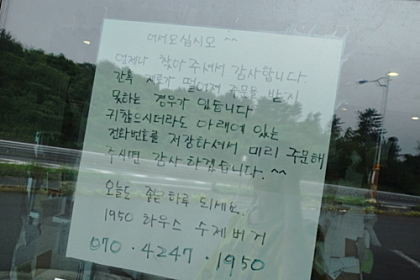 어서오십시오 ^^
언제나 찾아주셔서 감사합니다
간혹 재료가 떨어져 주문을 받지
못하는 경우가 있습니다
귀찮으시더라도 아래에 있는
전화번호를 저장하셔서 미리 주문해
주시면 감사하겠습니다. ^^
오늘도 좋은하루 되세요.
1950 하우스 수제버거
070 · 4247 · 1950